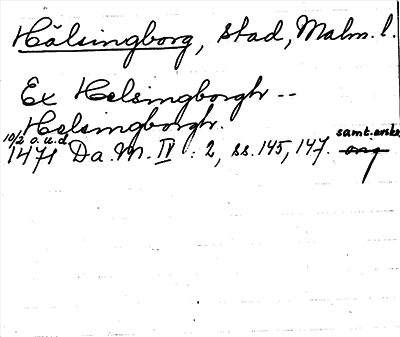 Hälsingborg, stad, Malm. l.
Ex Helsingborgh --
Helsingborgh.
10/2 o.u.d. samt. avskr.
1471 Da. M. IV : 2, ss. 145, 147. org